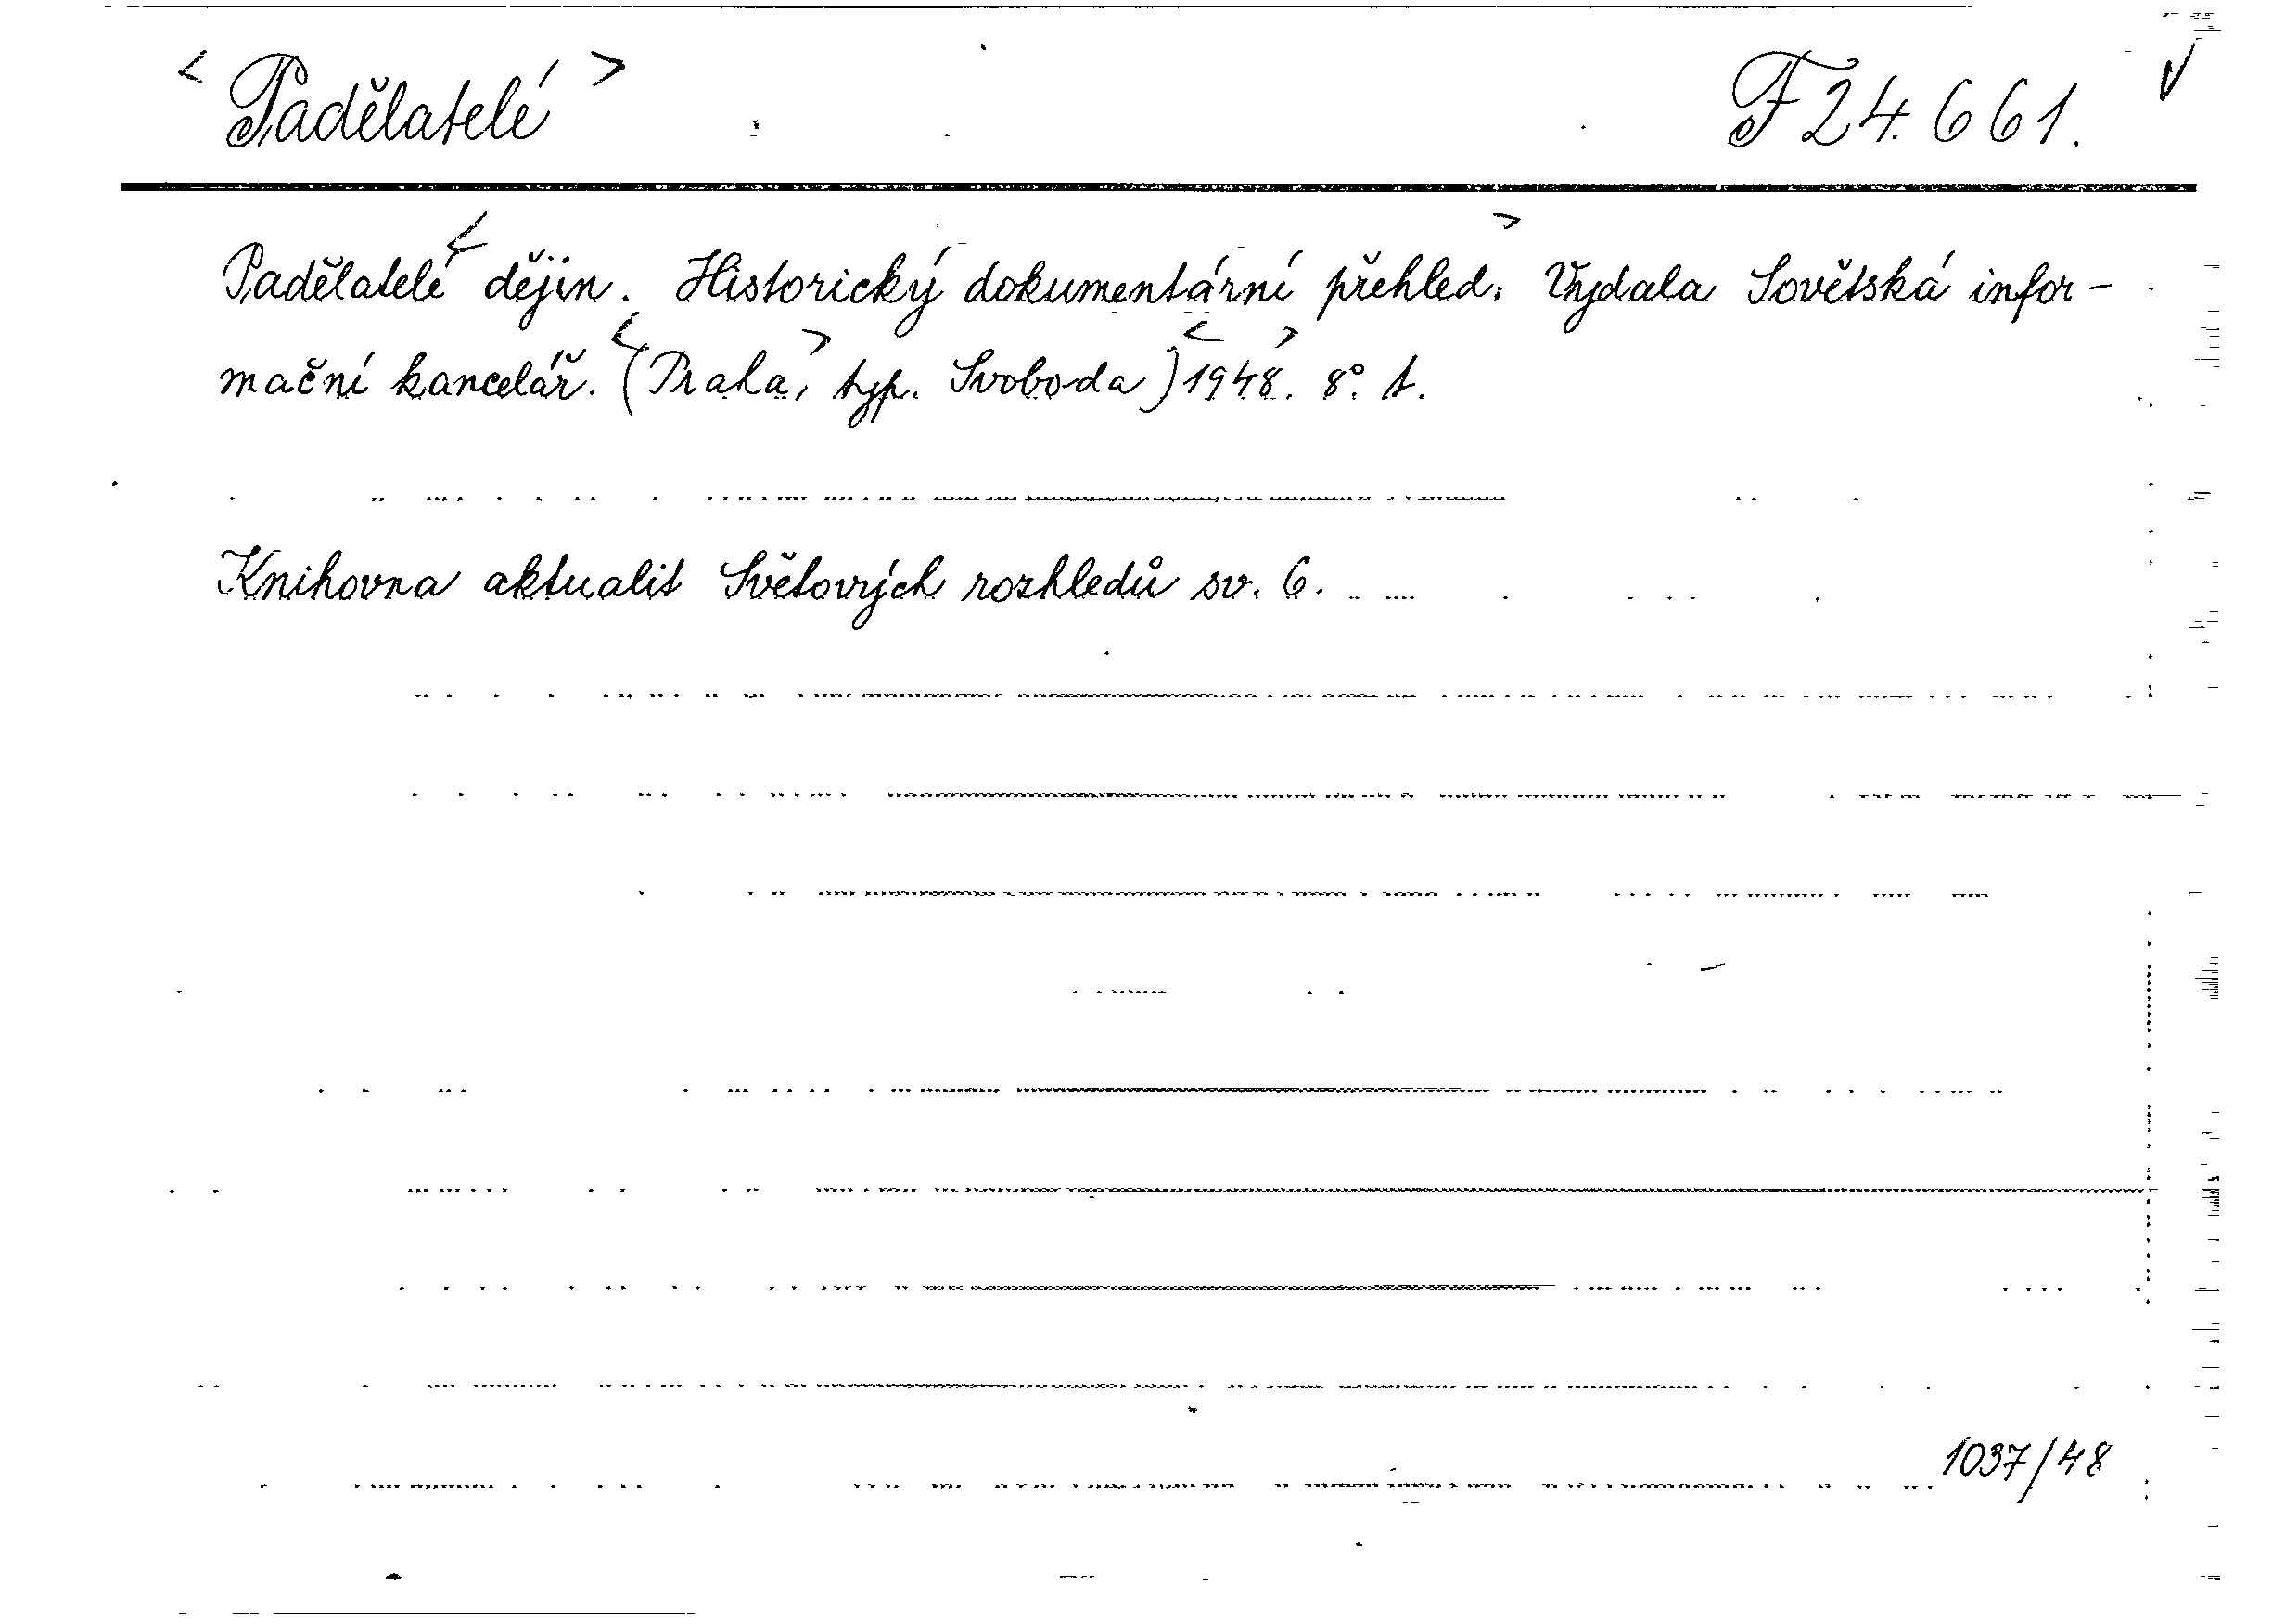 < Padělatelé > F 24.661. √
Padělatelé < dějin. Historický dokumentární přehled. > Vydala Sovětská infor-
mační kancelář. <(Praha,> typ. Svoboda) <1948.> 8° A.
Knihovna aktualit Světových rozhledů sv. 6.
1037/48